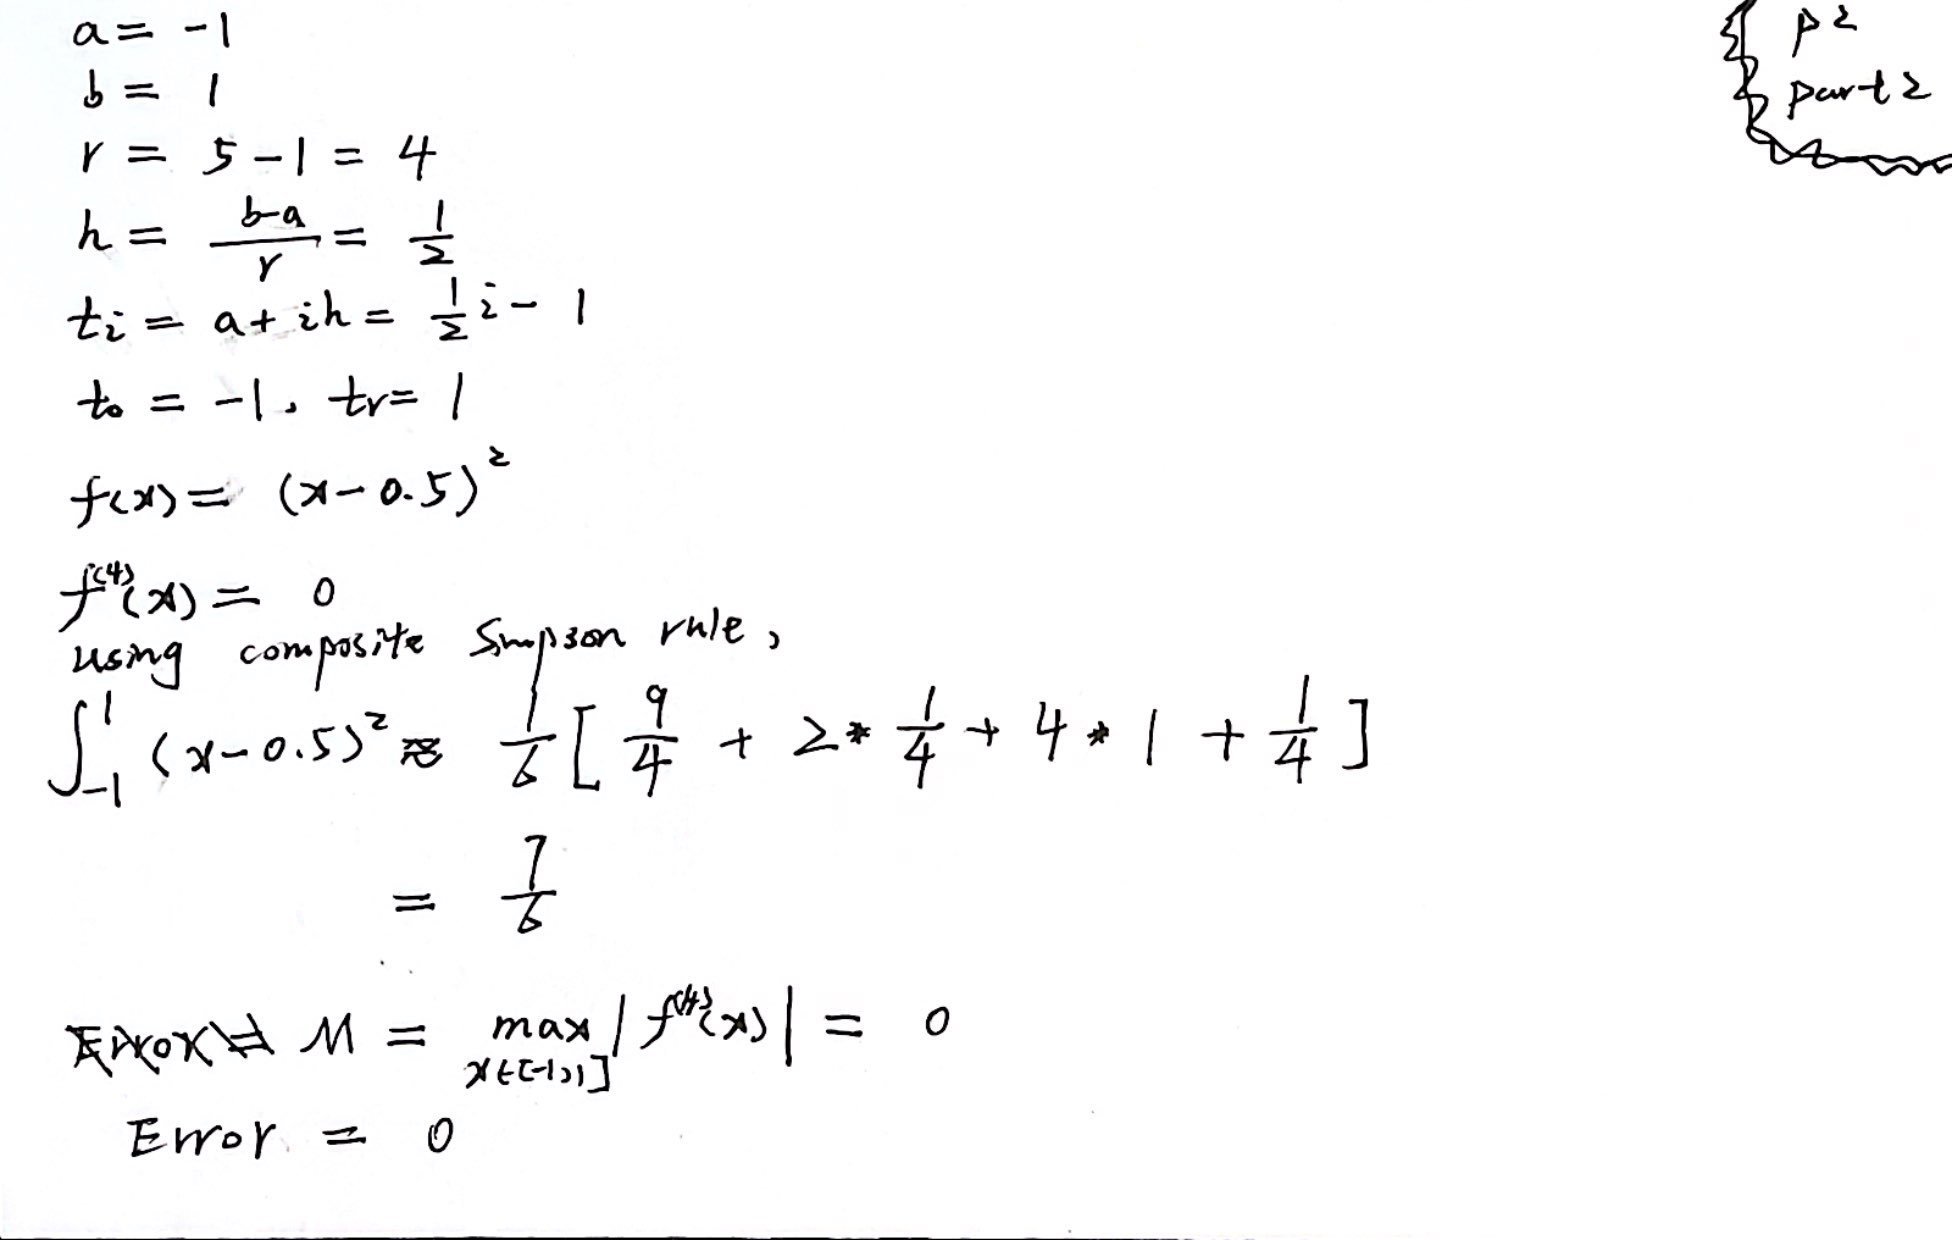 a = -1
p2
b = 1
part 2
r = 5 - 1 = 4
h = b-a/r = 1/2
ti = a + ih = 1/2 i - 1
t0 = -1, tr = 1
f(x) = (x - 0.5)²
f⁽⁴⁾(x) = 0
using composite Simpson rule,
∫₋₁¹ (x - 0.5)² ≈ 1/6 [ 9/4 + 2 * 1/4 + 4 * 1 + 1/4 ]
= 7/6
Error = M = max |f⁽⁴⁾(x)| = 0
x∈[-1,1]
Error = 0